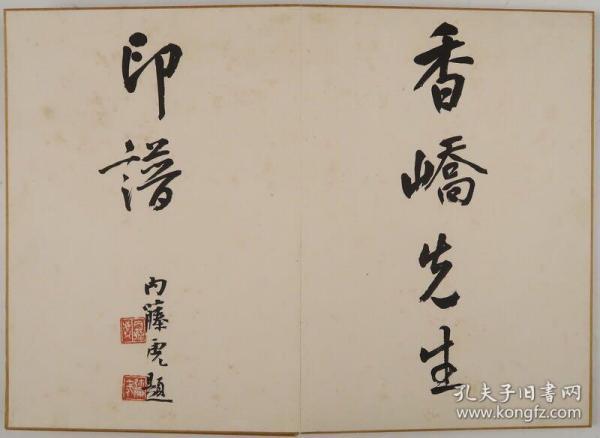 香嶠先生
印譜
内藤虎題
孔夫子旧书网
www.kongfz.com